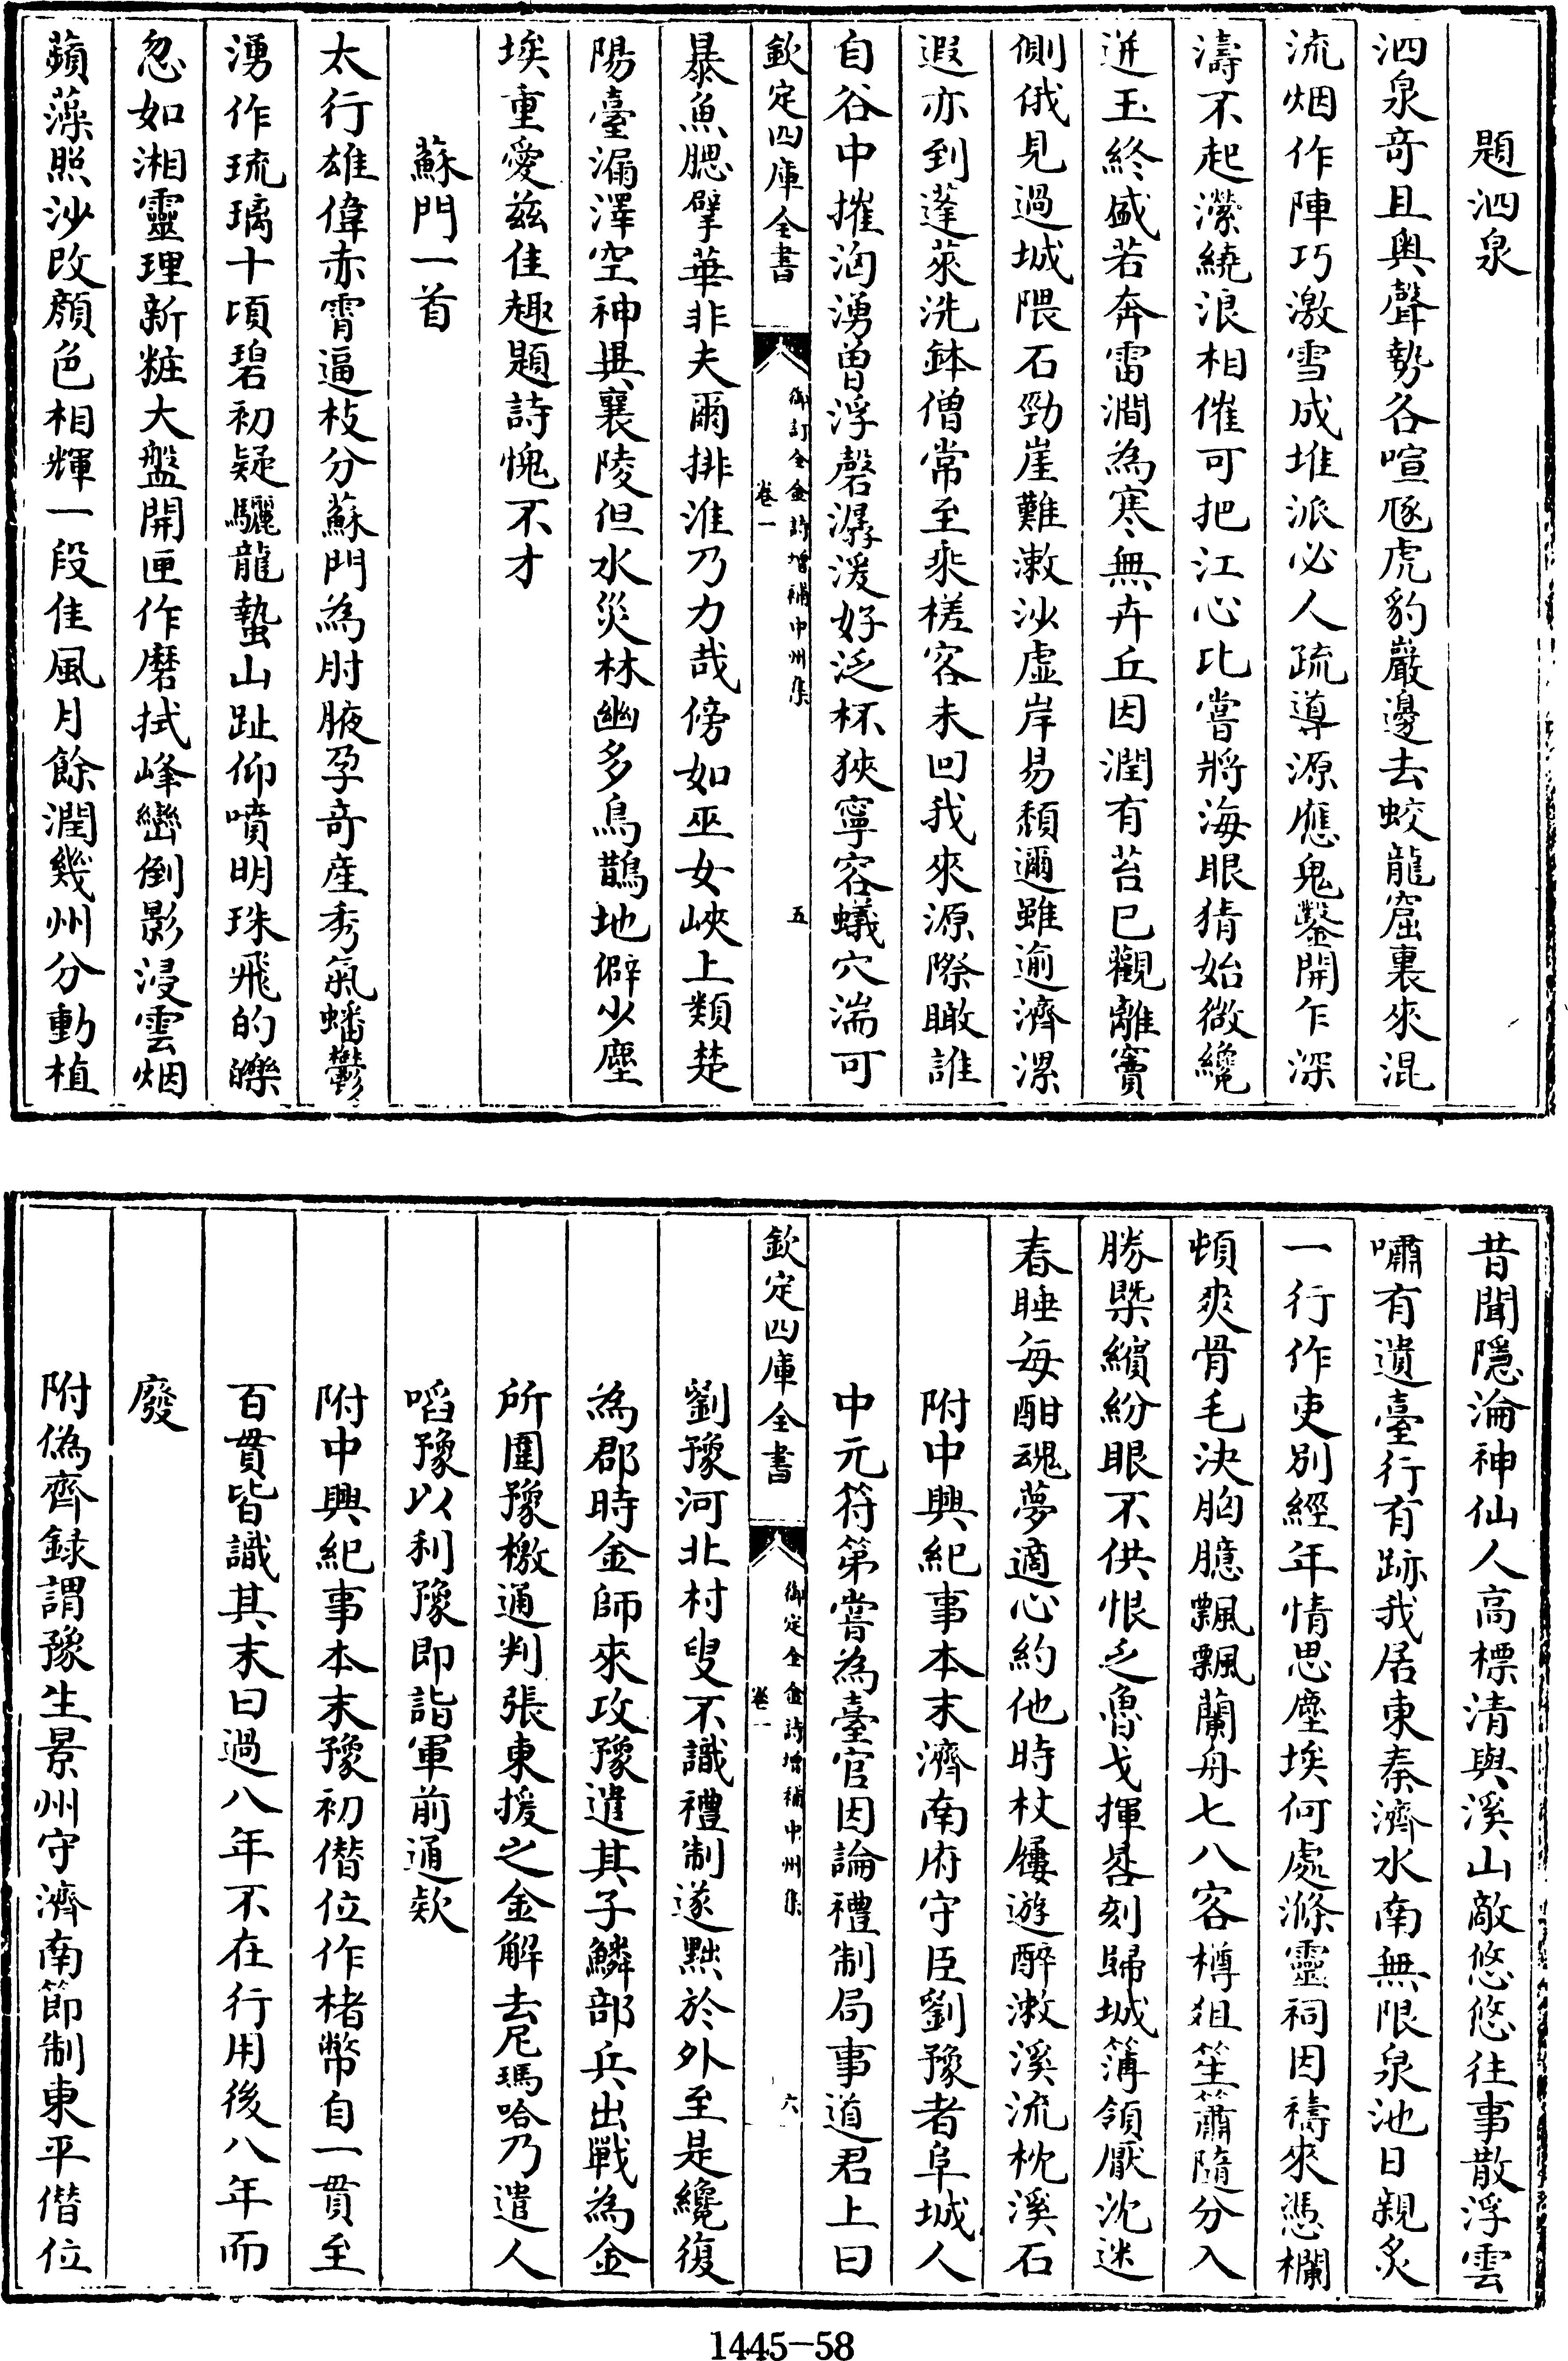 題泗泉
泗泉奇且奥聲勢各喧豗虎豹巖邊去蛟龍窟裏來混
流烟作陣巧激雪成堆派必人疏導源應鬼鑿開乍深
濤不起瀠繞浪相催可把江心比嘗將海眼猜始微纔
迸玉終盛若奔雷澗為寒無卉丘因潤有苔已觀離竇
側俄見過城隈石勁崖難漱沙虛岸易頽邇雖逾濟漯
遐亦到蓬萊洗鉢僧常至乘槎客未回我來源際瞰誰
自谷中摧洶湧曽浮磬潺湲好泛杯狹寧容蟻穴湍可
欽定四庫全書
御訂全金詩增補中州集
卷一
五
暴魚腮擘華非夫爾排淮乃力哉傍如巫女峽上類楚
陽臺漏澤空神異襄陵但水災林幽多鳥鵲地僻少塵
埃重愛兹佳趣題詩愧不才
蘇門一首
太行雄偉赤霄逼枝分蘇門為肘腋孕奇産秀氣蟠鬱
湧作琉璃十頃碧初疑驪龍蟄山趾仰噴明珠飛的皪
忽如湘靈理新粧大盤開匣作磨拭峰巒倒影浸雲烟
蘋藻照沙改顔色相輝一段佳風月餘潤幾州分動植
昔聞隱淪神仙人高標清與溪山敵悠悠往事散浮雲
嘯有遺臺行有跡我居東秦濟水南無限泉池日親炙
一行作吏別經年情思塵埃何處滌靈祠因禱來憑欄
頓爽骨毛決胸臆飄飄蘭舟七八客樽俎笙簫隨分入
勝槩繽紛眼不供恨乏魯戈揮晷刻歸城簿領厭沈迷
春睡每酣魂夢適心約他時杖屨遊醉漱溪流枕溪石
附中興紀事本末濟南府守臣劉豫者阜城人
中元符第嘗為臺官因論禮制局事道君上曰
欽定四庫全書
御定全金詩增補中州集
卷一
六
劉豫河北村叟不識禮制遂黜於外至是纔復
為郡時金師來攻豫遣其子鱗部兵出戰為金
所圍豫檄通判張東援之金解去尼瑪哈乃遣人
啗豫以利豫即詣軍前通欵
附中興紀事本末豫初僭位作楮幣自一貫至
百貫皆識其末曰過八年不在行用後八年而
廢
附偽齊録謂豫生景州守濟南節制東平僭位
1445-58